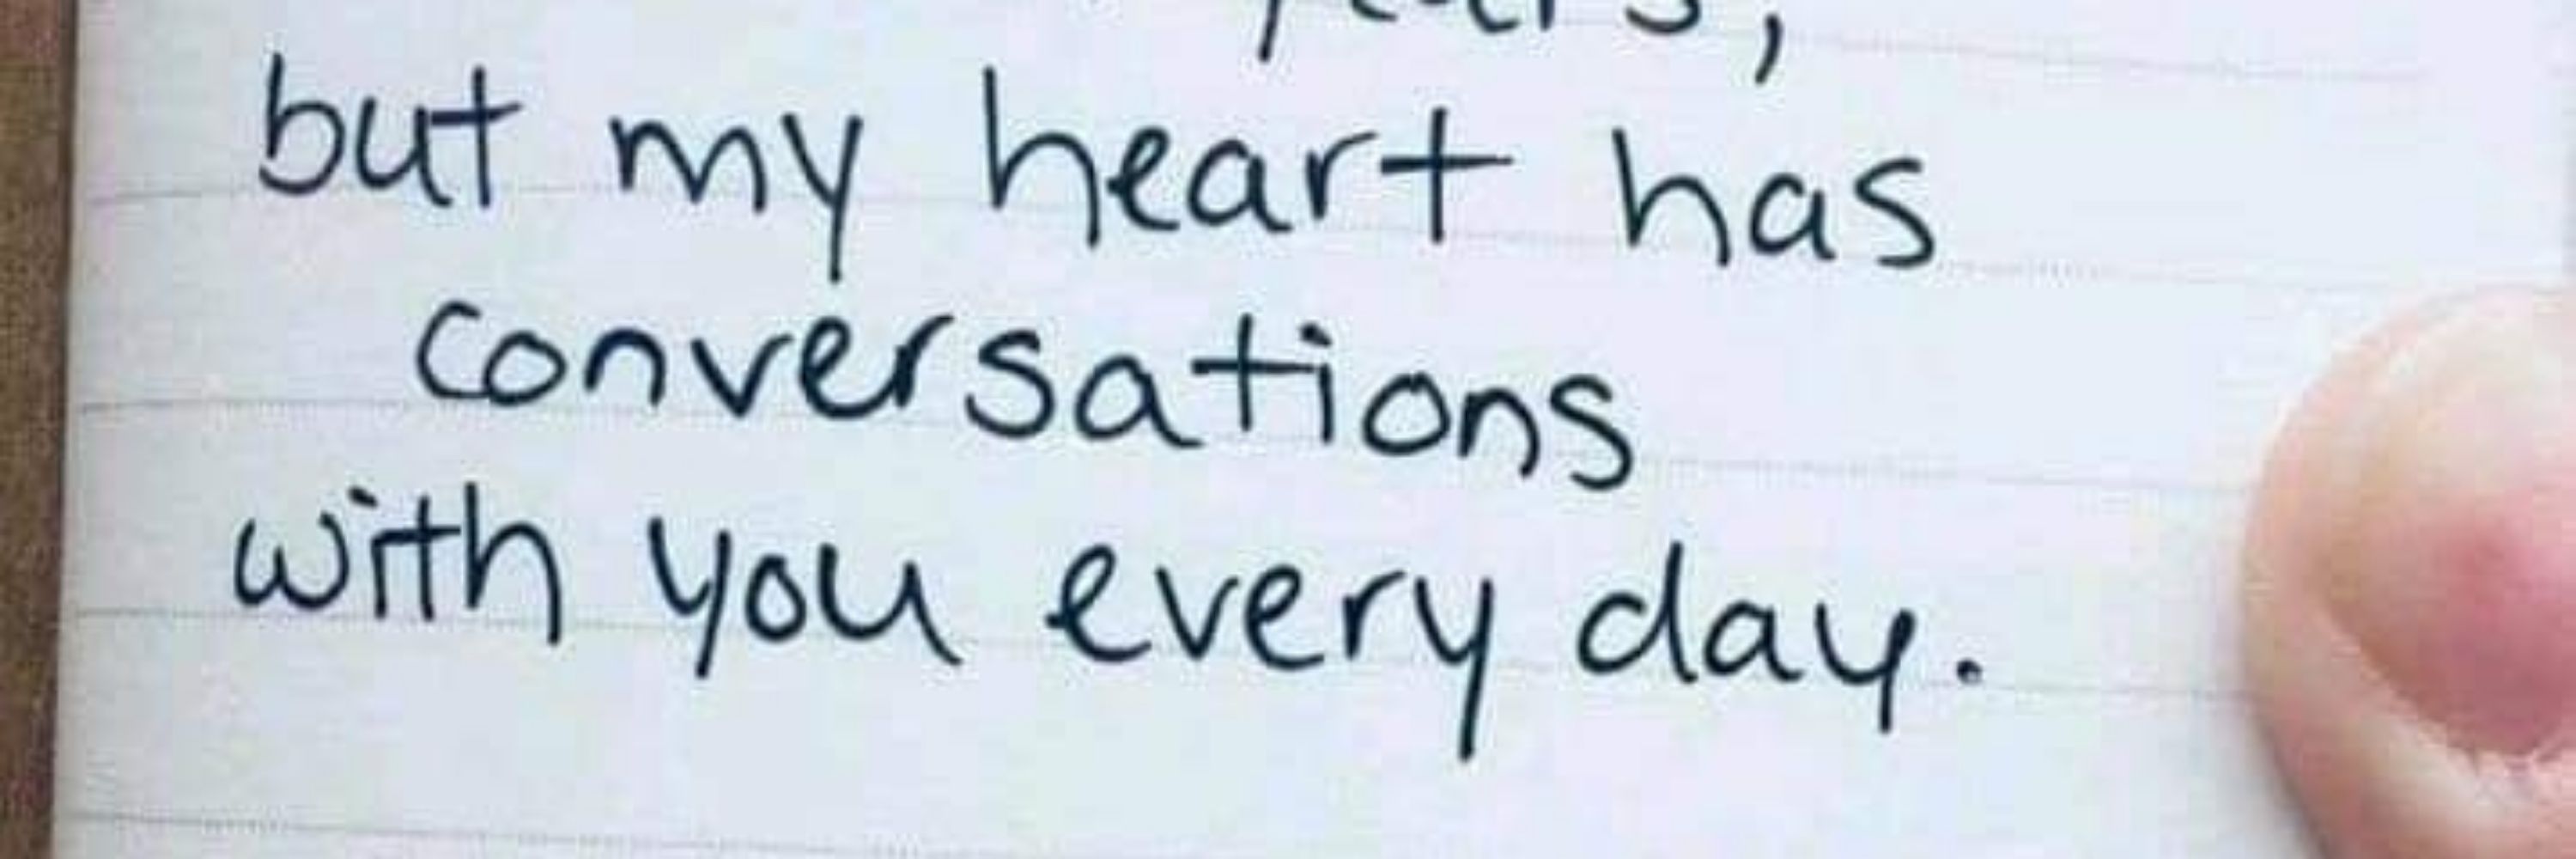 but my heart has
conversations
with you every day.